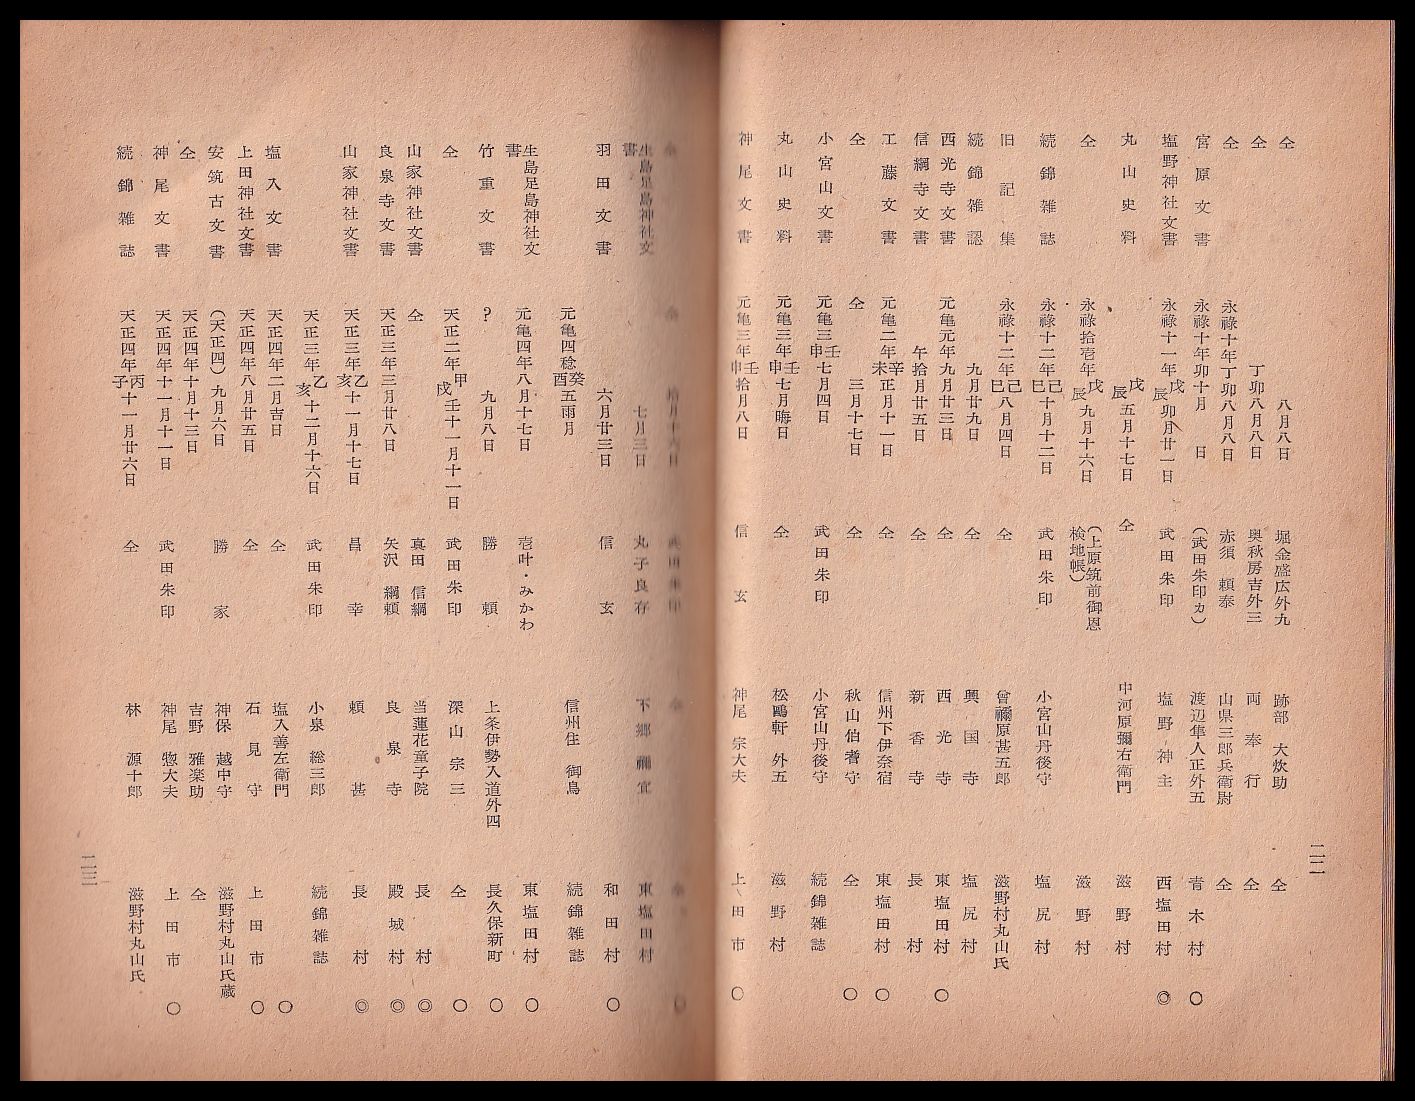 仝 八月八日 堀金盛広外九 跡部 大炊助 仝
仝 丁卯八月八日 奥秋房吉外三 両奉行 仝
仝 永祿十年丁卯八月八日 赤須 頼泰 山県三郎兵衛尉 仝
宮原文書 永祿十年卯十月 日 (武田朱印カ) 渡辺隼人正外五 青木村 〇
塩野神社文書 永祿十一年戊辰卯月廿一日 武田朱印 塩野神主 西塩田村 ◎
丸山史料 戊辰五月十七日 仝 中河原彌右衛門 滋野村
仝 永祿拾壱年戊辰九月十六日 (上原筑前御恩検地帳) 滋野村
続錦雑誌 永祿十二年己巳十月十二日 武田朱印 小宮山丹後守 塩尻村
旧記集 永祿十二年己巳八月四日 仝 曾禰原甚五郎 滋野村丸山氏
続錦雑認 九月廿九日 仝 興国寺 塩尻村
西光寺文書 元亀元年九月廿三日 仝 西光寺 東塩田村 〇
信綱寺文書 午拾月廿五日 仝 新香寺 長村
工藤文書 元亀二年辛未正月十一日 仝 信州下伊奈宿 東塩田村 〇
仝 仝 三月十七日 仝 秋山伯耆守 仝 〇
小宮山文書 元亀三壬申七月四日 武田朱印 小宮山丹後守 続錦雑誌
丸山史料 元亀三年壬申七月晦日 仝 松鷗軒 外五 滋野村
神尾文書 元亀三年壬申拾月八日 信玄 神尾 宗大夫 上田市 〇
二二
仝 仝 拾月十六日 武田朱印 仝 仝 〇
生島足島神社文書 七月三日 丸子良存 下郷禰宜 東塩田村
羽田文書 六月廿三日 信玄 和田村 〇
元亀四稔癸酉五雨月 信州住 御鳥 続錦雑誌
生島足島神社文書 元亀四年八月十七日 壱叶・みかわ 東塩田村 〇
竹重文書 ? 九月八日 勝頼 上条伊勢入道外四 長久保新町 〇
仝 天正二年甲戌壬十一月十一日 武田朱印 深山宗三 仝 〇
山家神社文書 仝 真田 信綱 当蓮花童子院 長村 ◎
良泉寺文書 天正三年三月廿八日 矢沢 綱頼 良泉寺 殿城村 ◎
山家神社文書 天正三年乙亥十一月十七日 昌幸 頼甚 長村 ◎
天正三年乙亥十二月十六日 武田朱印 小泉 総三郎 続錦雑誌
塩入文書 天正四年二月吉日 仝 塩入善左衛門 〇
上田神社文書 天正四年八月廿五日 仝 石見守 上田市 〇
安筑古文書 (天正四)九月六日 勝家 神保 越中守 滋野村丸山氏蔵
仝 天正四年十月十三日 吉野 雅楽助 仝
神尾文書 天正四年十一月十一日 武田朱印 神尾 惣大夫 上田市 〇
続錦雑誌 天正四年丙子十一月廿六日 仝 林 源十郎 滋野村丸山氏
二三